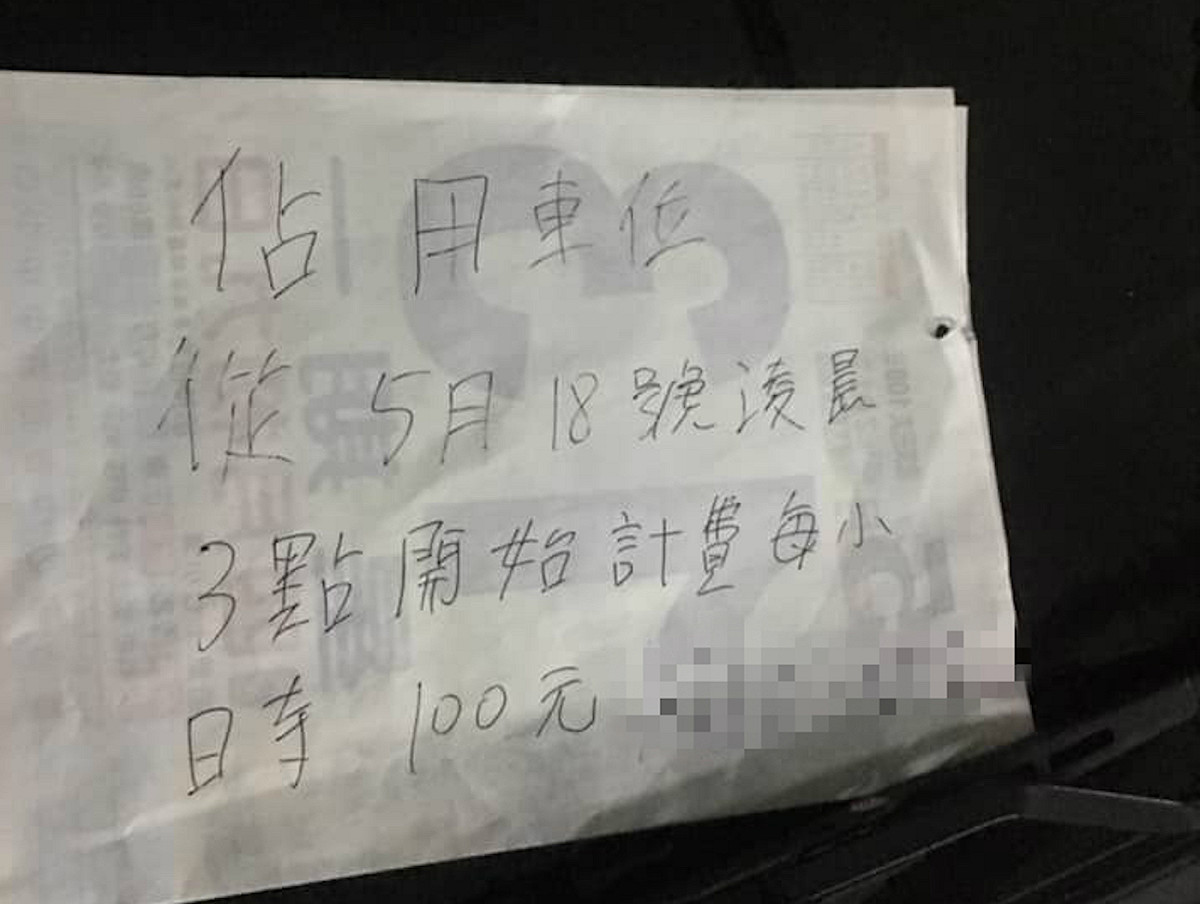 佔用車位
從 5月 18號凌晨
3點開始計費每小
時 100元